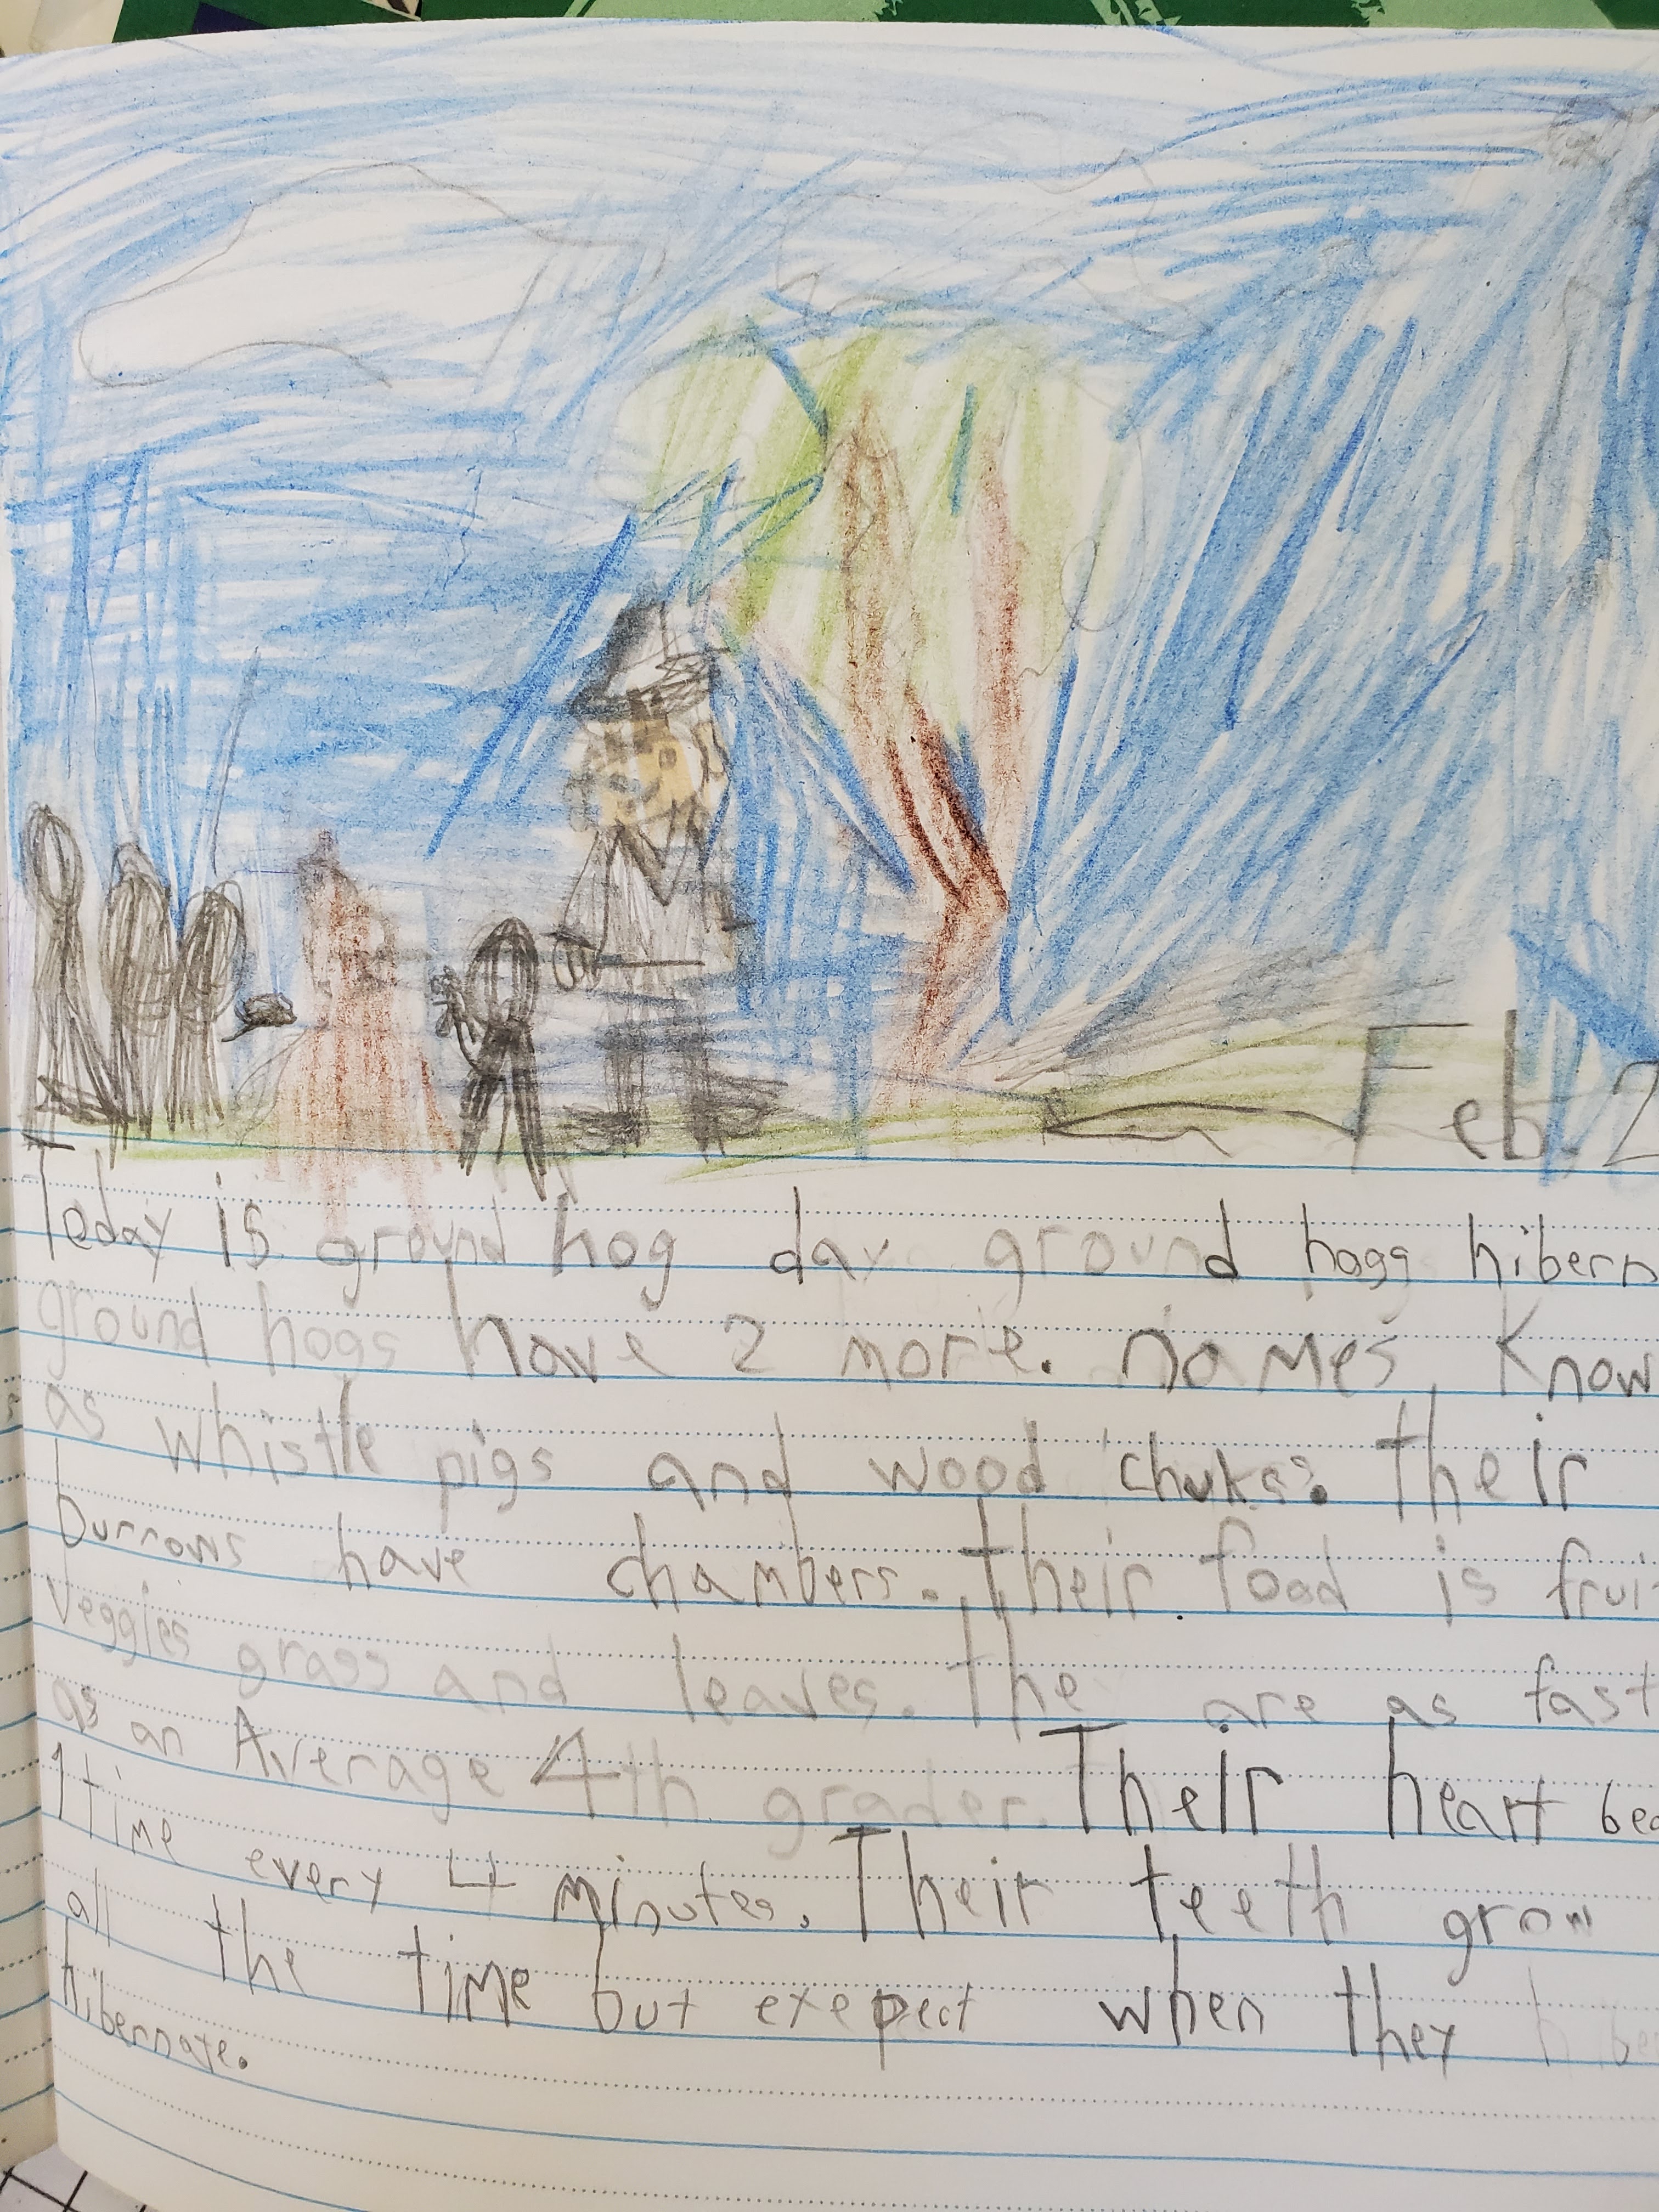 Feb. 2
Today is ground hog day ground hogg hibern
ground hogs have 2 more. names, know
as whistle pigs and wood chuks. Their
burrows have chambers. Their food is frui
veggies grass and leaves. The are as fast
as an Average 4th grader. Their heart bea
1 time every 4 minutes. Their teeth grow
all the time but exepect when they hiber
hibernate.